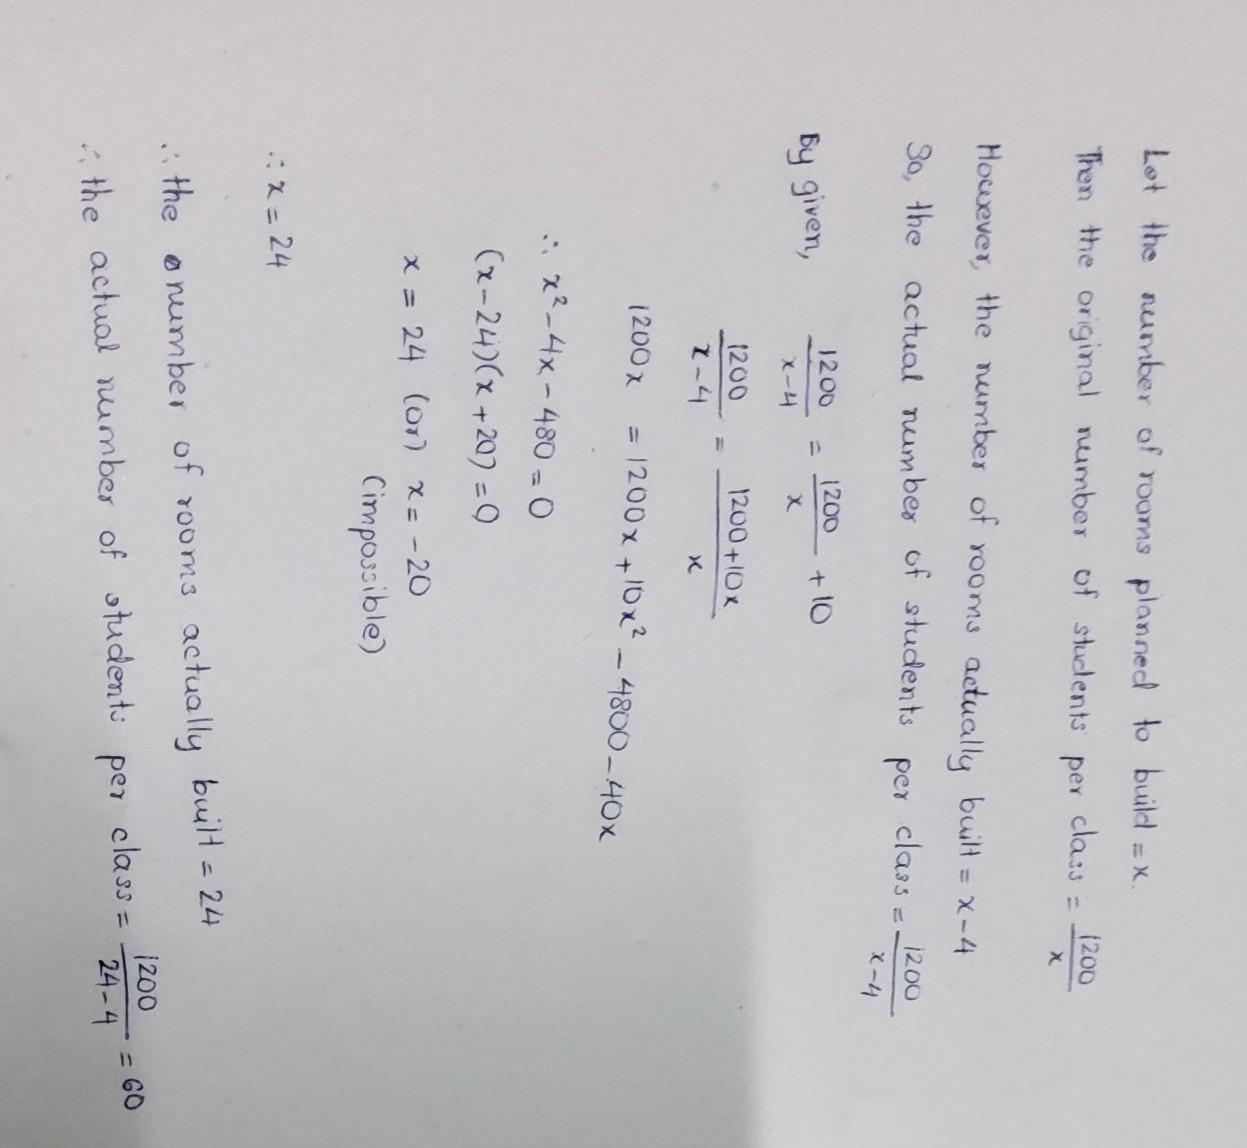 Let the number of rooms planned to build = x.
Then the original number of students per class = 1200/x
However, the number of rooms actually built = x-4
So, the actual number of students per class = 1200/x-4
By given, 1200/x-4 = 1200/x + 10
1200/x-4 = 1200+10x/x
1200x = 1200x + 10x² - 4800 - 40x
∴ x² - 4x - 480 = 0
(x-24)(x+20) = 0
x = 24 (or) x = -20
(impossible)
∴ x = 24
∴ the number of rooms actually built = 24
∴ the actual number of students per class = 1200/24-4 = 60